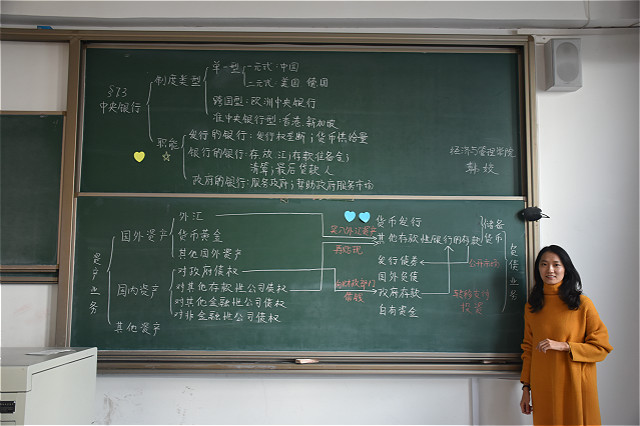 §13
中央银行
制度类型
单一型
一元式：中国
二元式：美国 德国
跨国型：欧洲中央银行
准中央银行型：香港、新加坡
职能
发行的银行：发行权垄断；货币供给量
银行的银行：存、放、汇；存款准备金；
清算；最后贷款人
政府的银行：服务政府；帮助政府服务市场
经济与管理学院
韩
资产业务
国外资产
外汇
货币黄金
其他国外资产
国内资产
对政府债权
对其他存款性公司债权
对其他金融性公司债权
对非金融性公司债权
其他资产
买入外汇资产
再贴现
借款
货币发行
其他存款性银行的存款
储备
货币
发行债券
国外负债
政府存款
自有资金
公开市场
转移支付
投资
负债业务